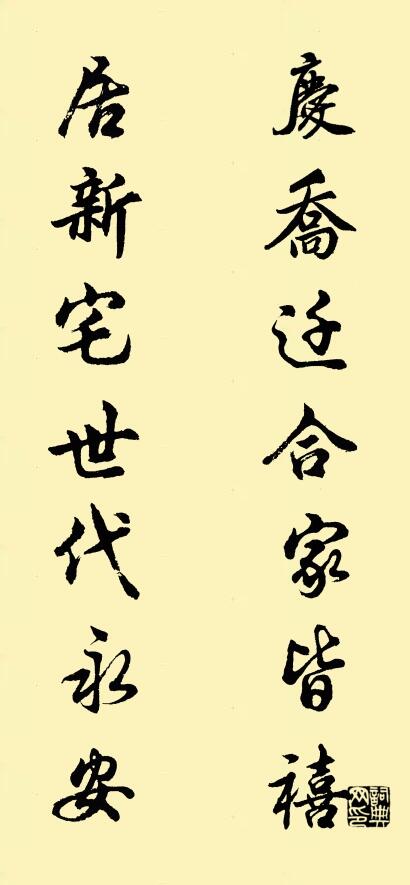 慶喬迁合家皆禧
居新宅世代永安
詞典網印